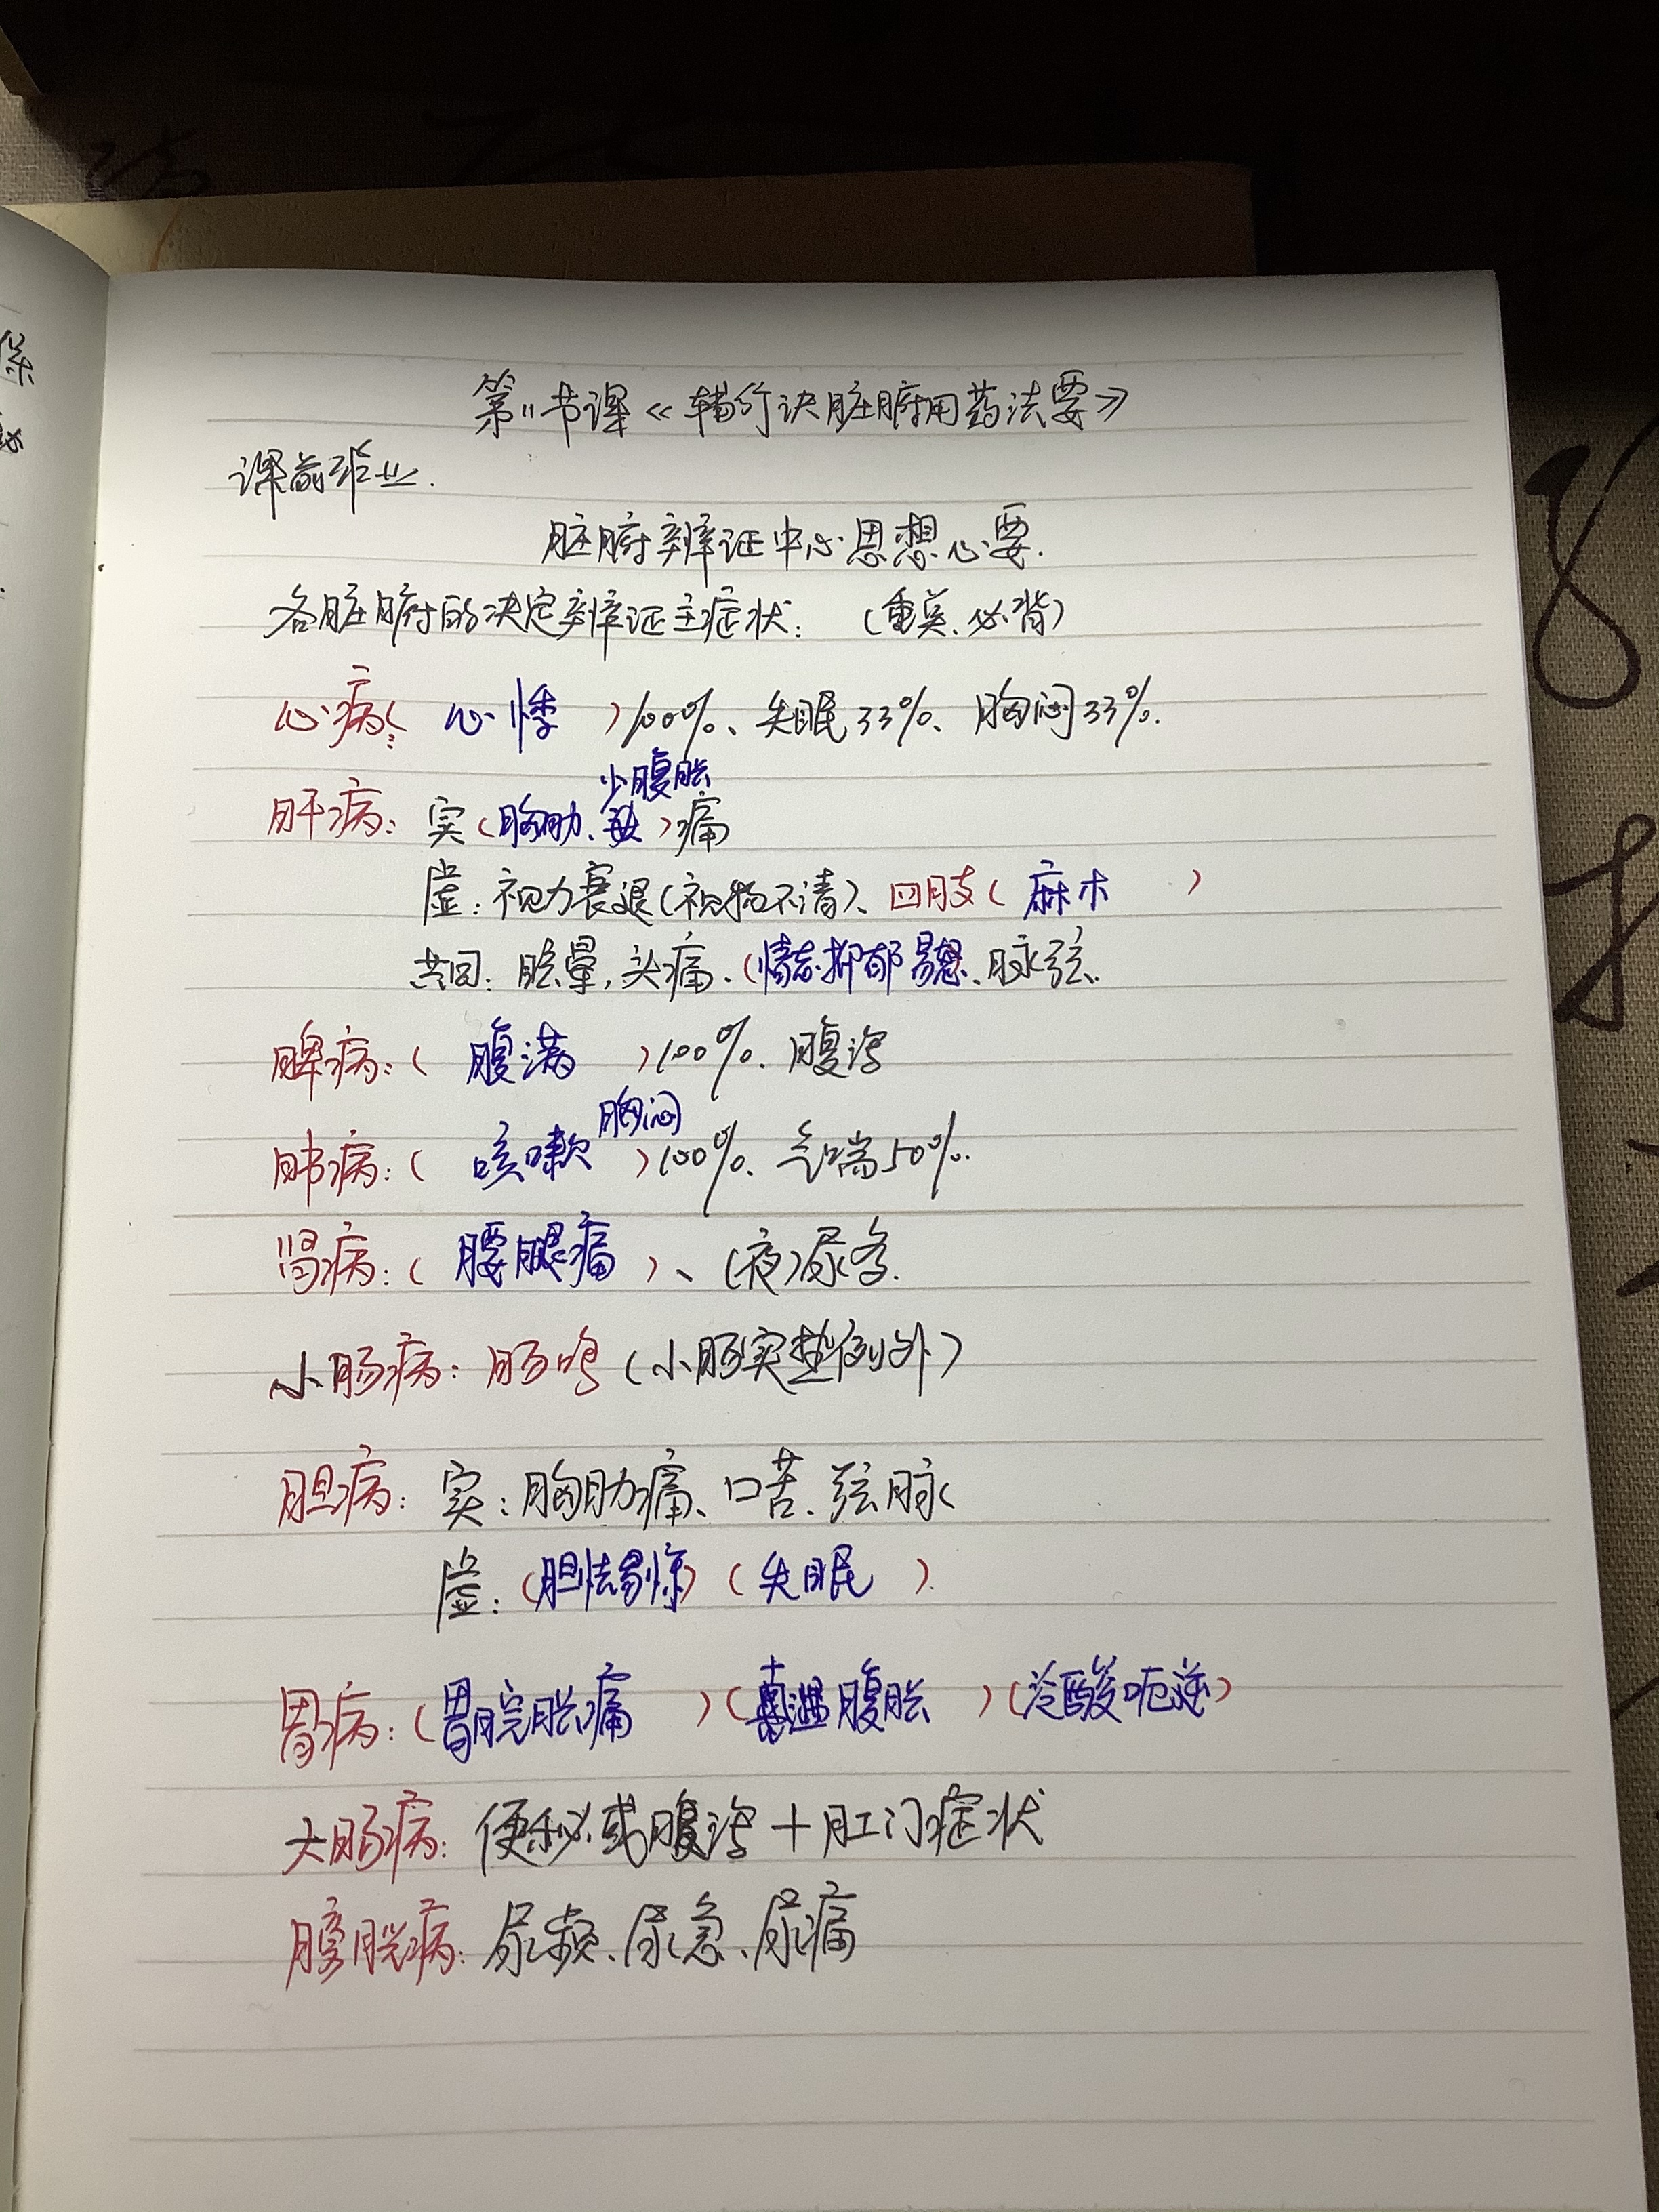 第11节课《辅行诀脏腑用药法要》
课前作业.
脏腑辨证中心思想心要.
各脏腑的决定辨证主症状: (重点、必背)
心病:( 心悸 )100%、失眠33%、胸闷33%.
少腹胀
肝病: 实(胸肋、)痛
虚:视力衰退(视物不清)、四肢( 麻木 )
共同: 眩晕,头痛、(情志抑郁易怒、脉弦.
脾病:( 腹满 )100%、腹泻
胸闷
肺病:( 咳嗽 )100%、气喘50%.
肾病:( 腰腿痛 )、(夜)尿多.
小肠病: 肠鸣(小肠实热例外)
胆病: 实:胸肋痛、口苦、弦脉
虚:(胆怯易惊)( 失眠 ).
胃病:(胃脘胀痛 )( 腹胀 )(泛酸呃逆)
大肠病: 便秘或腹泻+肛门症状
膀胱病: 尿频、尿急、尿痛